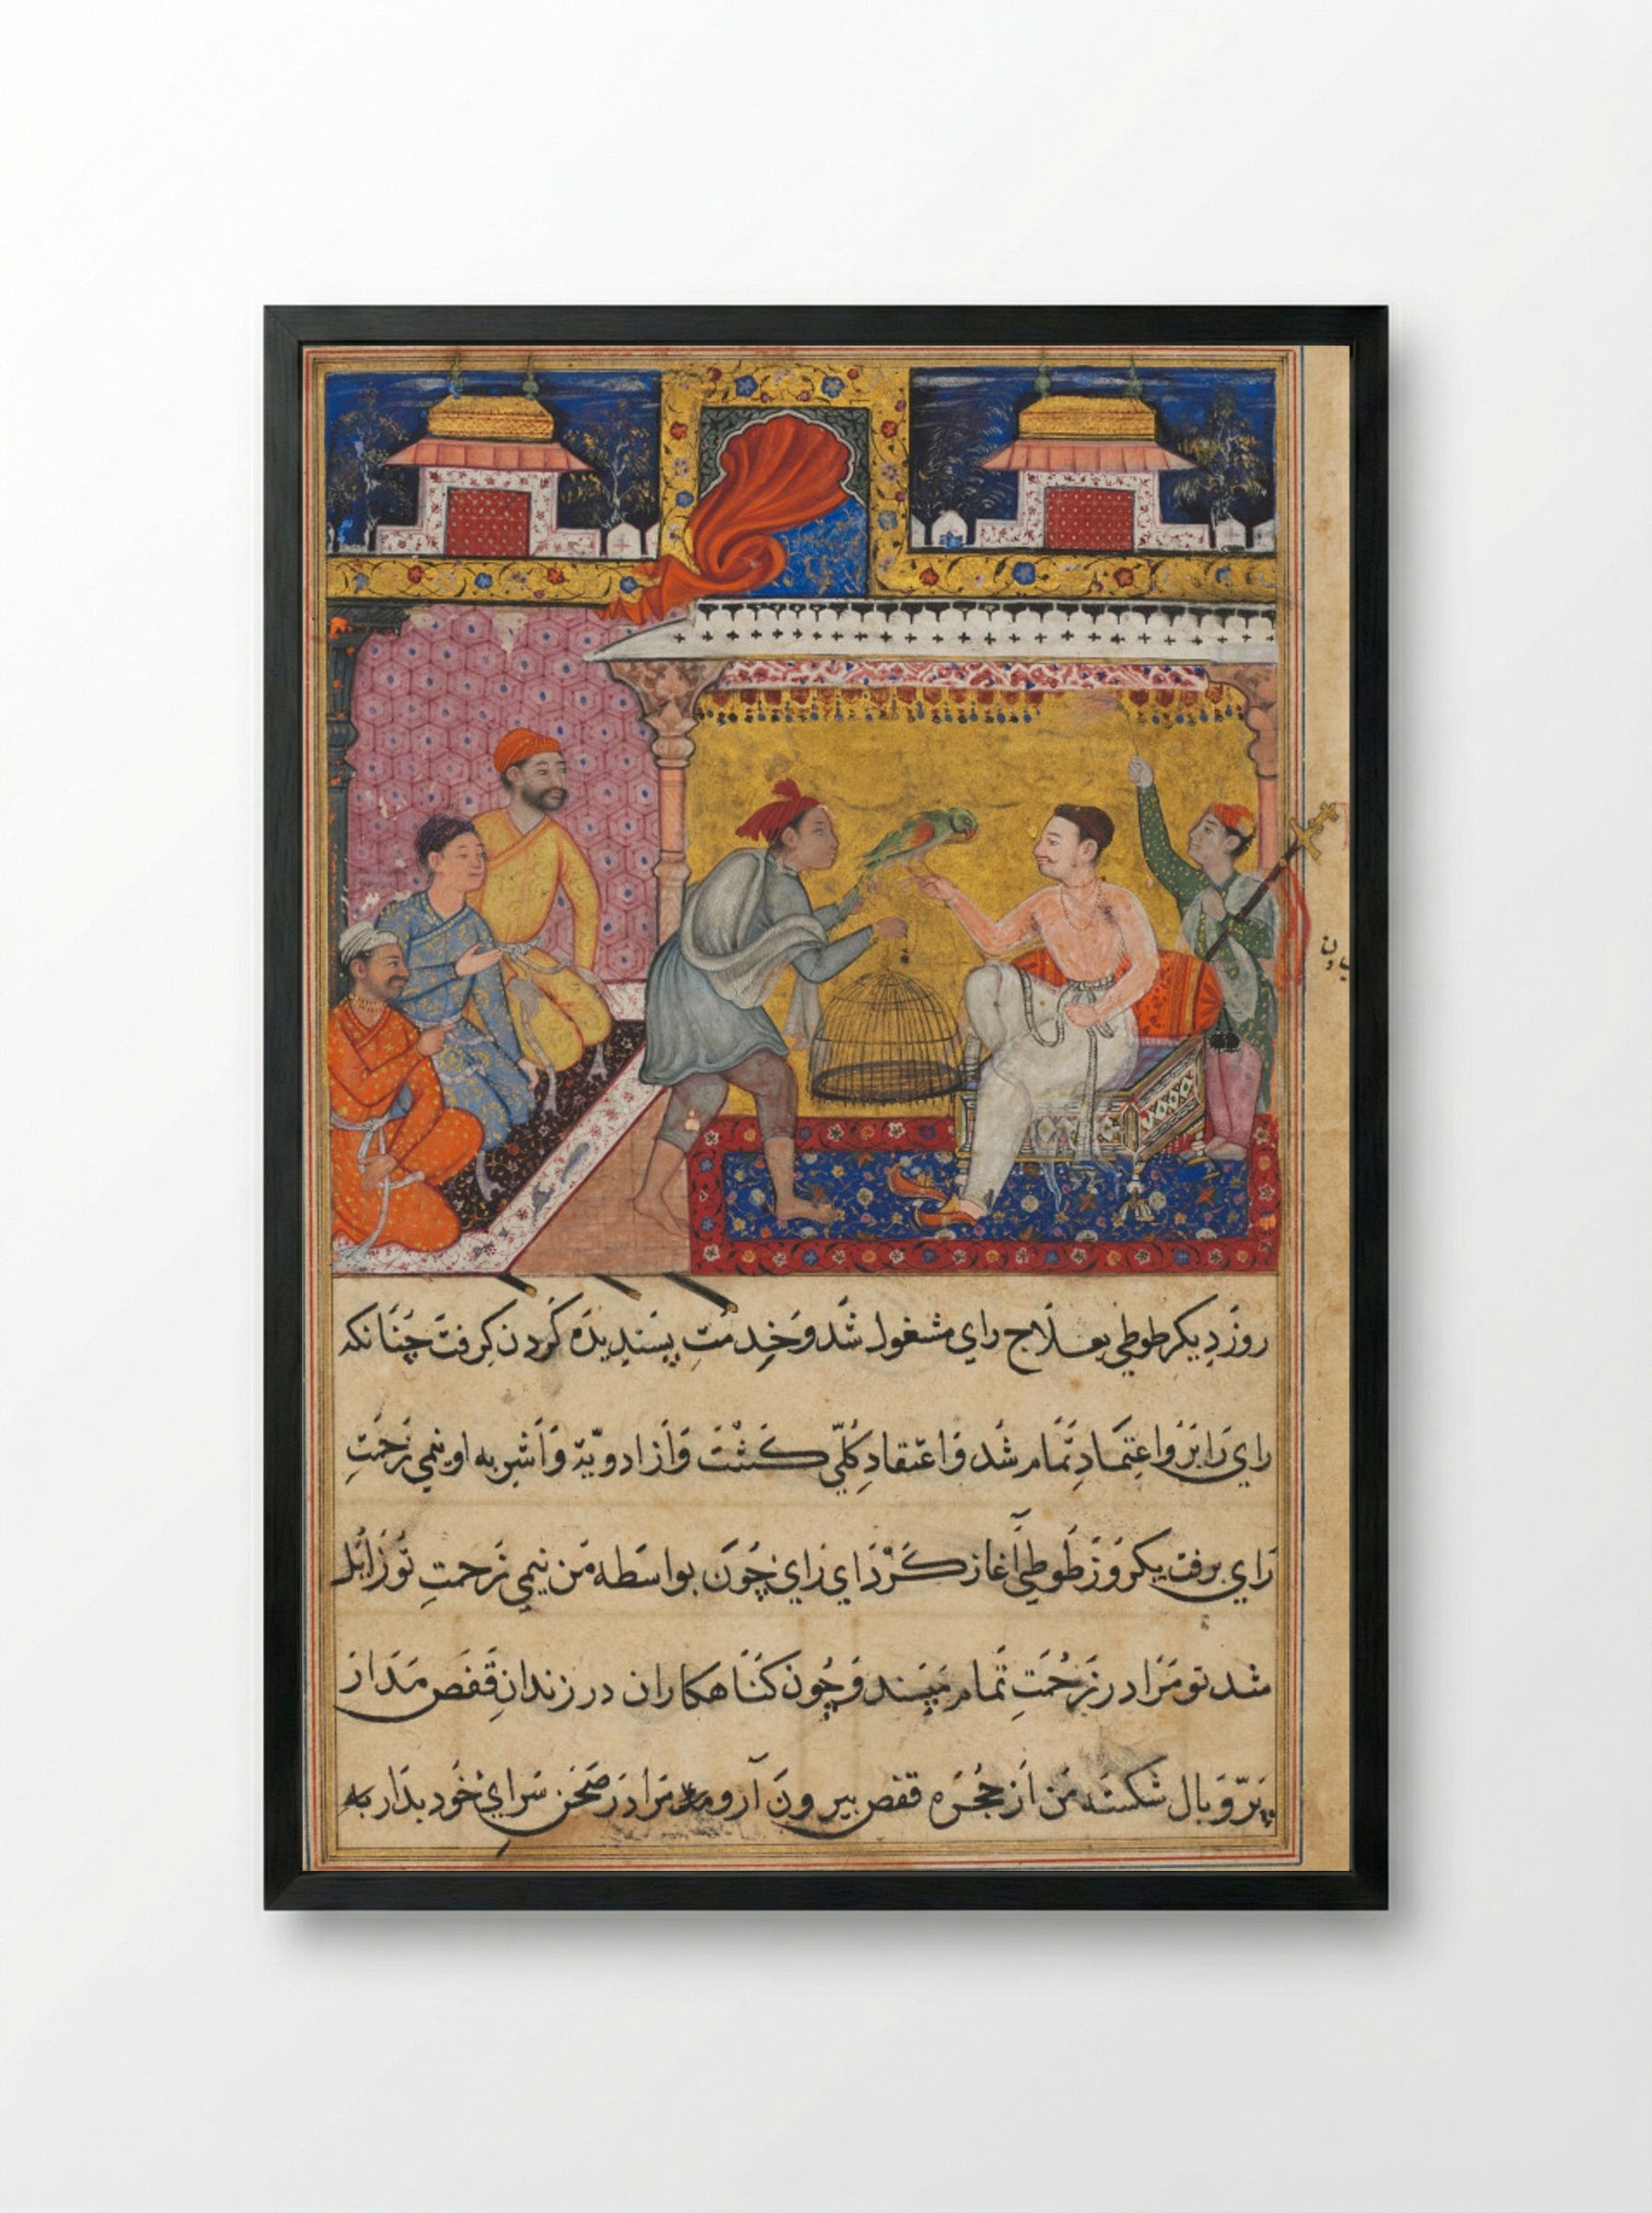 روز دیکر طوطی بعلاج رای مشغول شد و خدمت پسندیده کردن کرفت چنانکه
رای را برو اعتماد تمام شد و اعتقاد کلی کشت و از ادویة و اشربه او نیمی زحمت
رای برفت یکروز طوطی آغاز کرد ای رای چون بواسطه من نیمی زحمت تو زائل
شد تو مرا در زحمت تمام مپسند و چون کناهکاران در زندان قفص مدار
پر و بال شکسته من از حجره قفص بیرون آر و مرا در صحن سرای خود بدار به